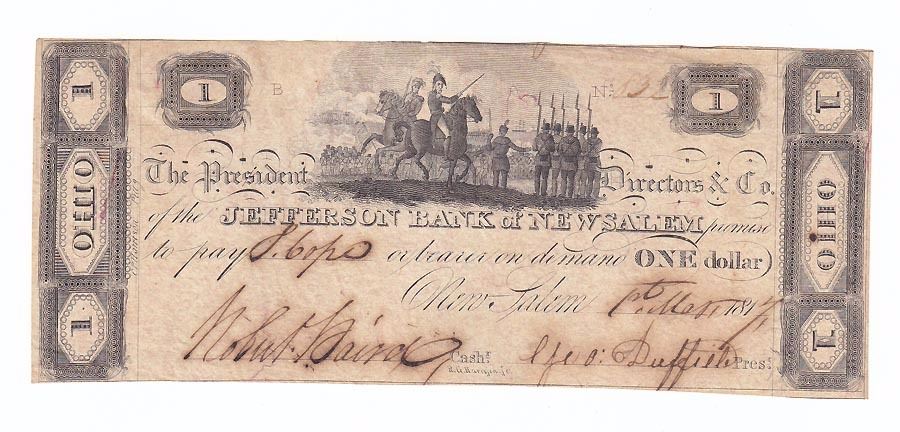 1 1 B Nº 1 L
The President Directors & Co.
OHIO of the JEFFERSON BANK of NEW SALEM promise OHIO
to pay J. Cope or bearer on demand ONE dollar
New Salem 1st May 1817
1 Robert Baird Cashr. Geo: Duffield Prest. E